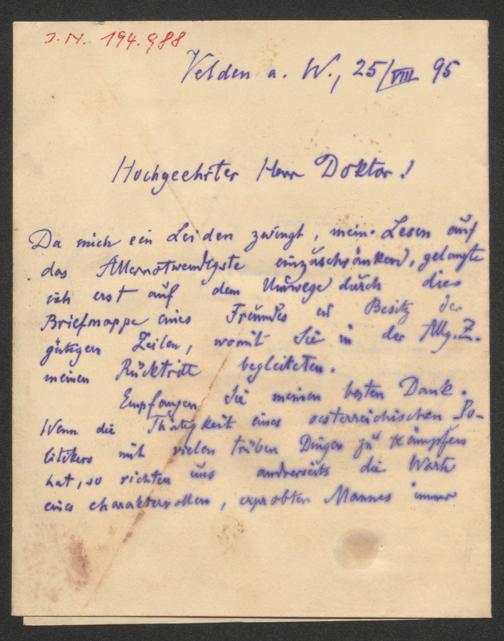 J.N. 194.988
Velden a. W., 25/VIII 95
Hochgeehrter Herr Doktor!
Da mich ein Leiden zwingt, mein Lesen auf
das Allernotwendigste einzuschränken, gelangte
ich erst auf dem Umwege durch die
Briefmappe eines Freundes in Besitz der
gütigen Zeilen, womit Sie in der Allg. Z.
meinen Rücktritt begleiteten.
Empfangen Sie meinen besten Dank.
Wenn die Thätigkeit eines oesterreichischen Po-
litikers mit vielen trüben Dingen zu kämpfen
hat, so richten uns andrerseits die Worte
eines charaktervollen, erprobten Mannes immer